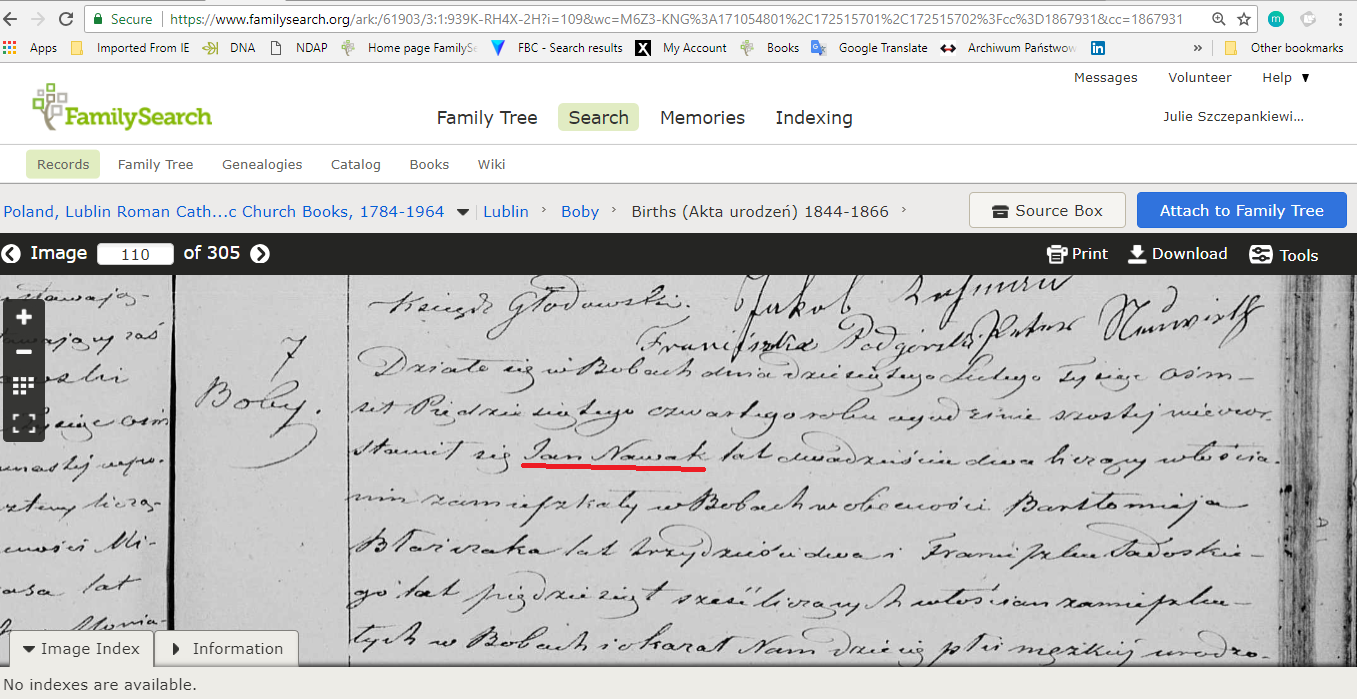 Secure
https://www.familysearch.org/ark:/61903/3:1:939K-RH4X-2H?i=109&wc=M6Z3-KNG%3A171054801%2C172515701%2C172515702%3Fcc%3D1867931&cc=1867931
m
Apps Imported From IE DNA NDAP Home page FamilySe FBC - Search results X My Account Books Google Translate Archiwum Państwow in » Other bookmarks
Messages Volunteer Help
FamilySearch
Family Tree Search Memories Indexing
Julie Szczepankiewi...
Records Family Tree Genealogies Catalog Books Wiki
Poland, Lublin Roman Cath...c Church Books, 1784-1964 Lublin › Boby › Births (Akta urodzeń) 1844-1866 ›
Source Box
Attach to Family Tree
Image 110 of 305
Print Download Tools
Ksiądz Głodowski. Jakob
Franciszka Podgórska Peter
7
Boby.
Działo się w Bobach dnia dziesiątego Lutego tysiąc ośm-
set Piędziesiątego czwartego roku o godzinie szostej wieczor.
stawił się Jan Nowak lat dwadzieścia dwa liczący włościa-
nin zamieszkały w Bobach w obecności Bartłomieja
Błaszczaka lat trzydzieści dwa i Franciszka Sadoskie-
go lat pięędziesiąt sześć liczących włościan zamieszka-
łych w Bobach i okazał Nam dziecię płci męzkiej urodzo-
Image Index
Information
No indexes are available.